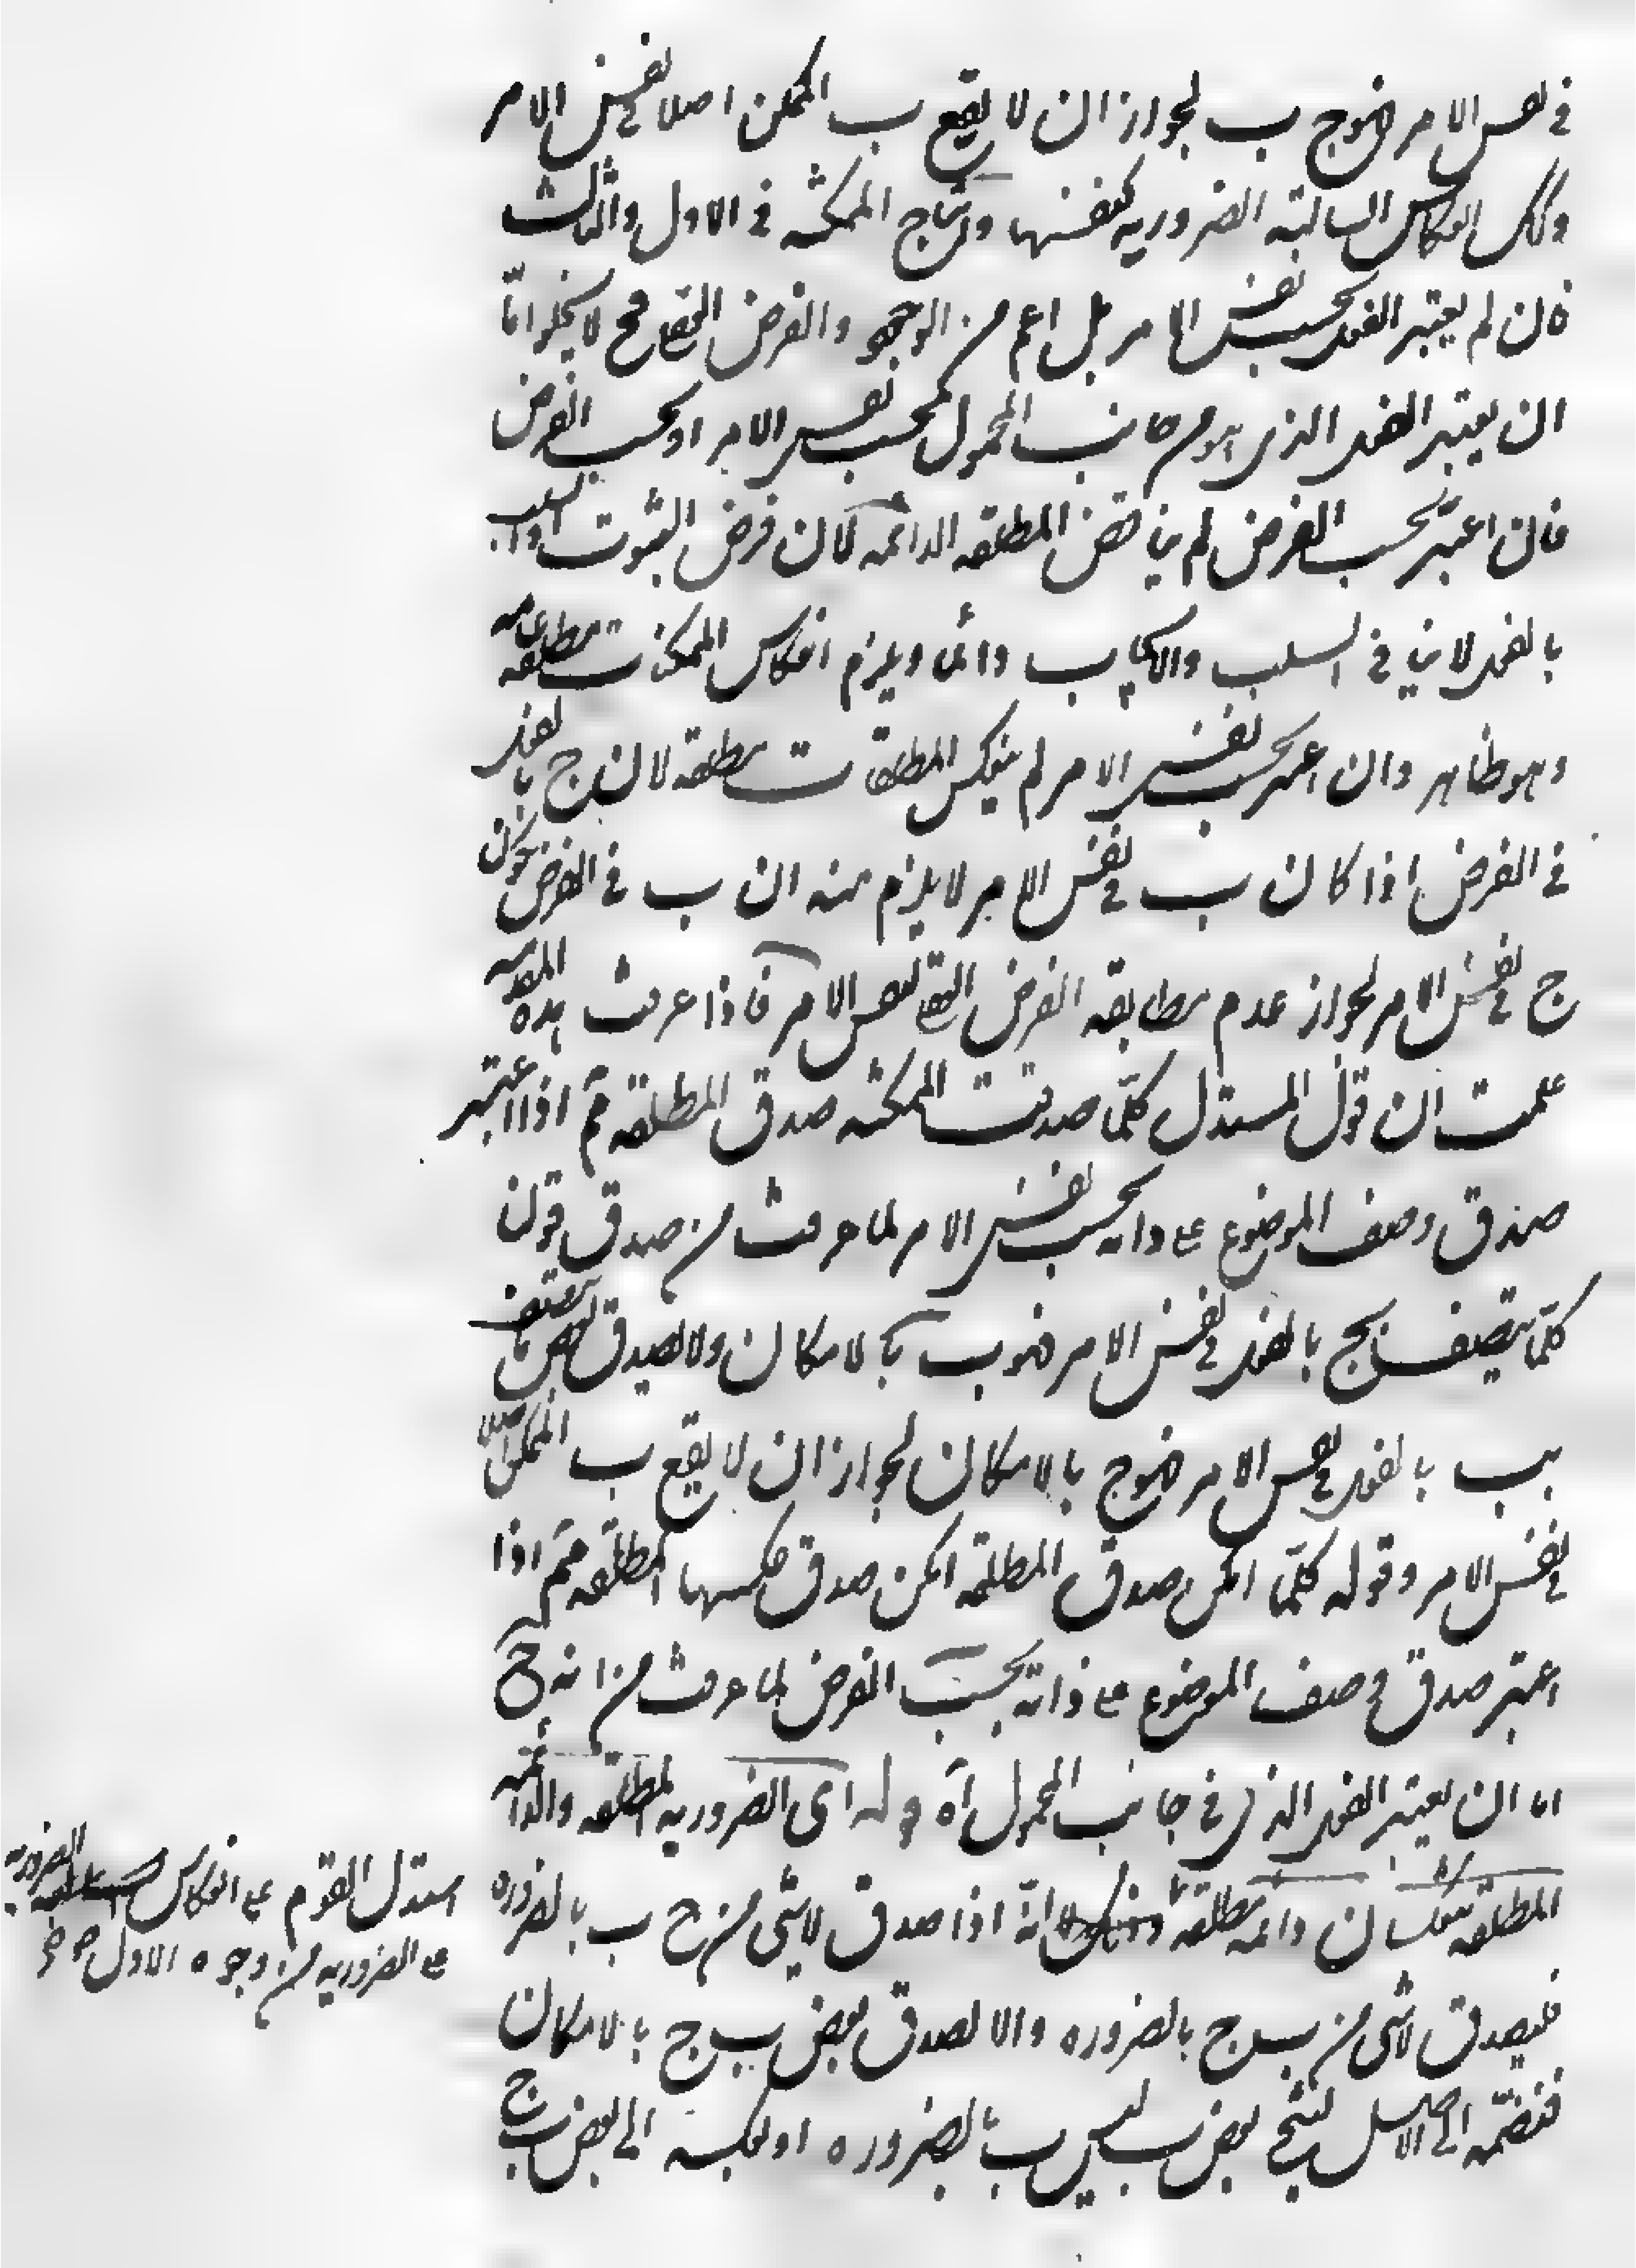 في نفس الامر فهو ج ب لجواز ان لا يقع ب الممكن اصلا في نفس الامر
وكك انعكاس السالبة الضرورية كنفسها وانتاج الممكنة في الاول والثالث
فان لم يعتبر الفعل بحسب نفس الامر بل اعم من الوجه والفرض العقلي فح لا يخلو امّا
ان يعتبر الفعل الذي هو من جانب المحمول بحسب نفس الامر او بحسب الفرض
فان اعتبر بحسب الفرض لم يناقض المطلقه الدائمه لان فرض الثبوت والسلب
بالفعل لا ينافي السلب والايجاب دائما ويلزم انعكاس الممكنات مطلقه عامه
وهو ظاهر وان اعتبر بحسب نفس الامر لم ينعكس المطلقات مطلقة لان ج بالفعل
في الفرض اذا كان ب في نفس الامر لا يلزم منه ان ب في الفرض يكون
ج في نفس الامر لجواز عدم مطابقه الفرض العقلي لنفس الامر فاذا عرفت هذه المقدمه
علمت ان قول المستدل كلّما صدقت الممكنه صدق المطلقه تم اذا اعتبر
صدق وصف الموضوع على ذاته بحسب نفس الامر لما عرفت من صدق قولنا
كلّما يتصف بج بالفعل في نفس الامر فهو ب بالامكان ولا يصدق بعض ما يتصف
بب بالفعل في نفس الامر فهو ج بالامكان لجواز ان لا يقع ب الممكن اصلا
في نفس الامر وقوله كلّما امكن صدق المطلقه امكن صدق عكسها المطلقه تم اذا
اعتبر صدق وصف الموضوع على ذاته بحسب الفرض لما عرفت من انه ح
اما ان يعتبر الفعل الذي في جانب المحمول آه قوله اي الضروريه المطلقه والدائمه
المطلقه تنعكسان دائمه مطلقة لانّه اذا صدق لا شي من ج ب بالضروره
فليصدق لا شي من ب ج بالضروره والا لصدق بعض ب ج بالامكان
فنضمّه الى الاصل لينتج بعض ب ليس ب بالضروره او نعكسه الى بعض ج ب
استدل القوم على انعكاس الضروريه
على الضروريه من وجوه الاول